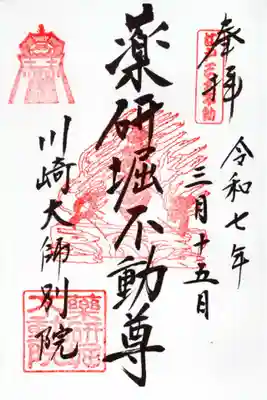 奉拝
令和七年
三月十五日
薬研堀不動尊
川崎大師別院